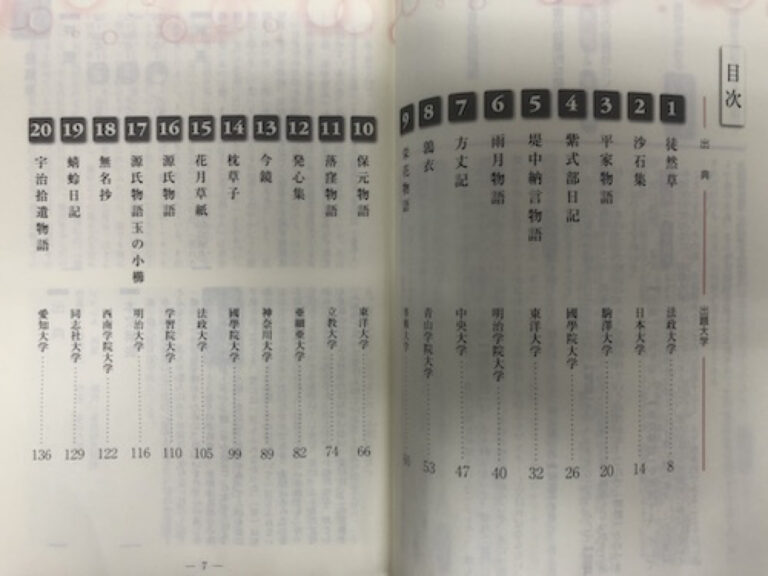 目次
出典
出題大学
1 徒然草 法政大学 8
2 沙石集 日本大学 14
3 平家物語 駒澤大学 20
4 紫式部日記 國學院大学 26
5 堤中納言物語 東洋大学 32
6 雨月物語 明治学院大学 40
7 方丈記 中央大学 47
8 鶉衣 青山学院大学 53
9 栄花物語 大学
10 保元物語 東洋大学 66
11 落窪物語 立教大学 74
12 発心集 亜細亜大学 82
13 今鏡 神奈川大学 89
14 枕草子 國學院大学 99
15 花月草紙 法政大学 105
16 源氏物語 学習院大学 110
17 源氏物語玉の小櫛 明治大学 116
18 無名抄 西南学院大学 122
19 蜻蛉日記 同志社大学 129
20 宇治拾遺物語 愛知大学 136
— 7 —